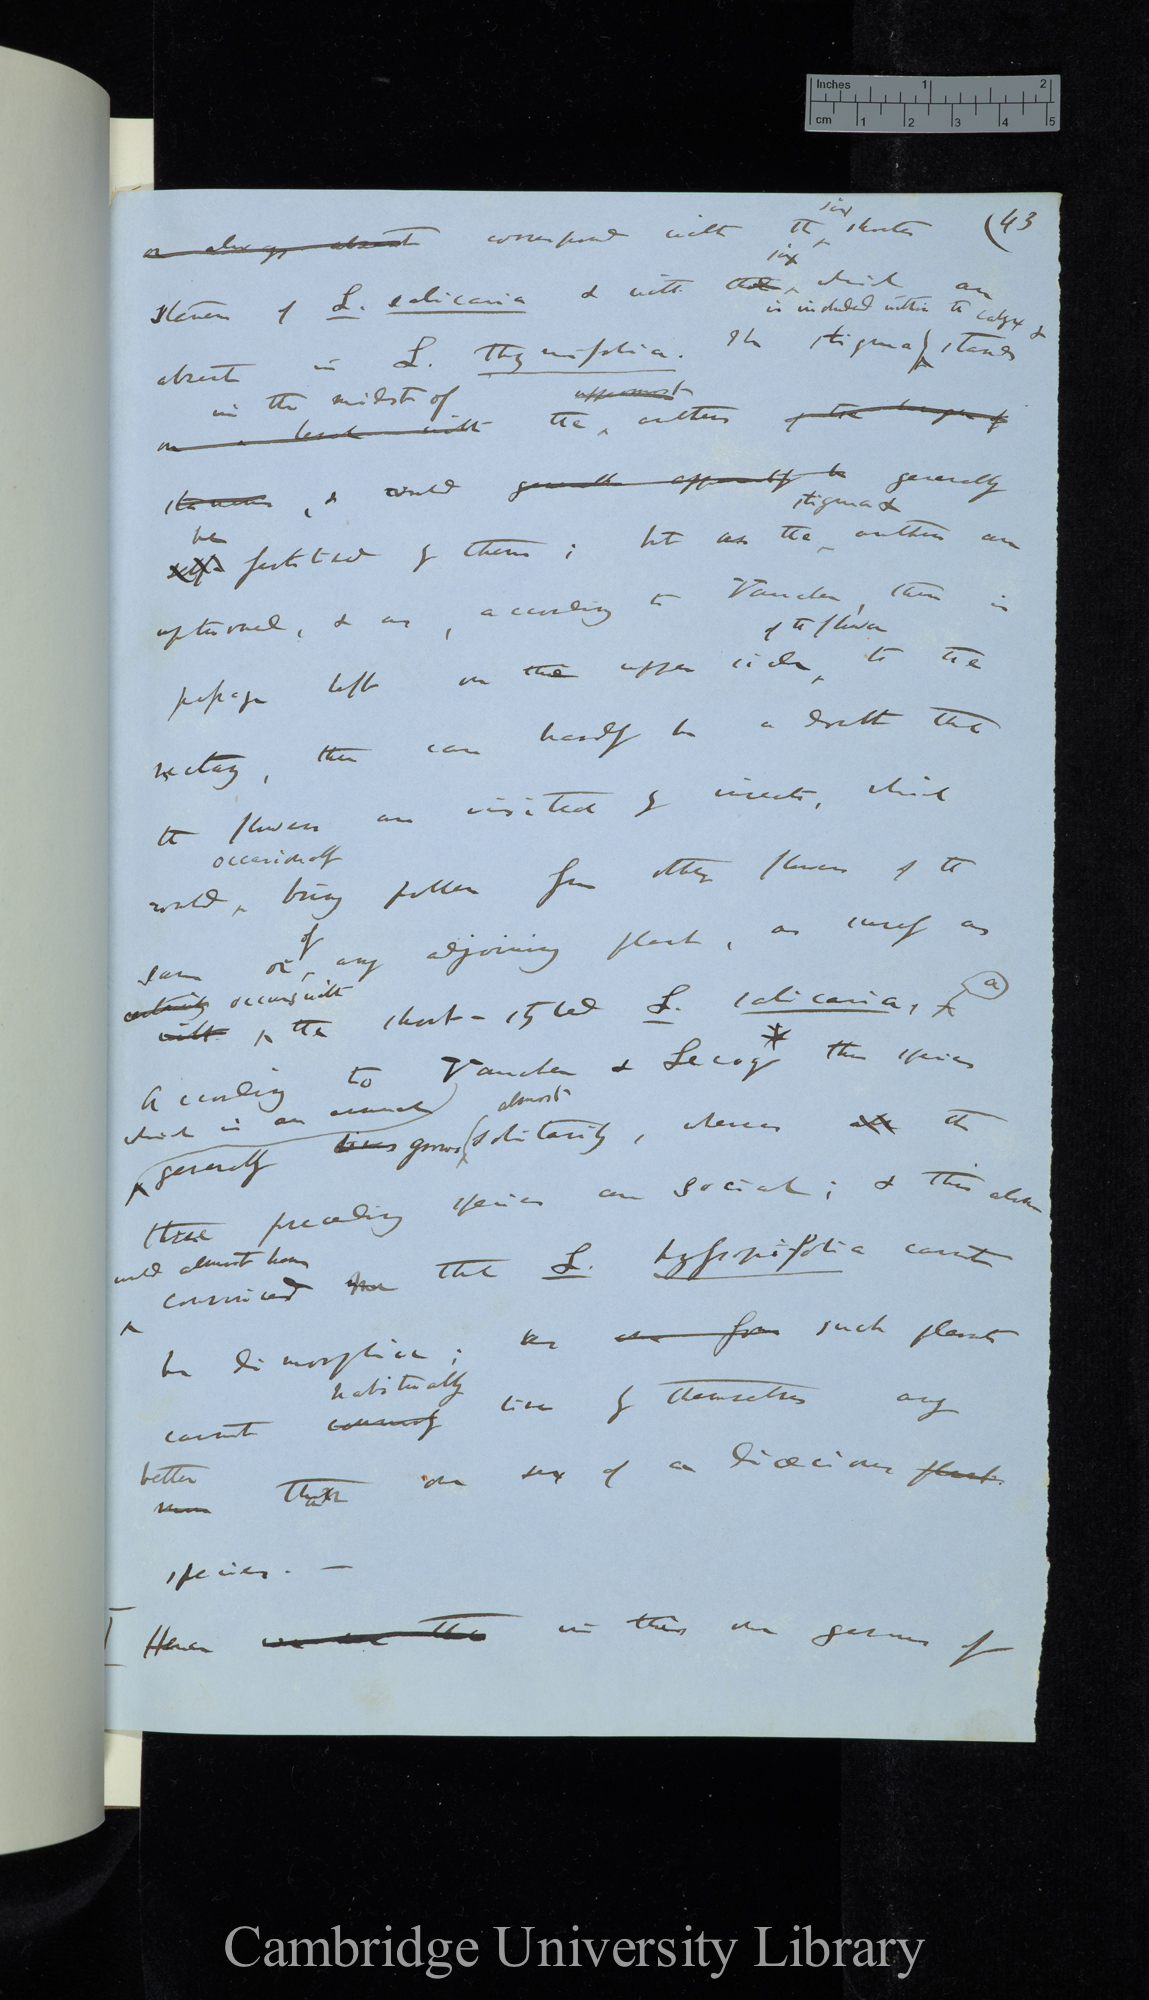 Inches 1 2
cm 1 2 3 4 5
(43
six
or always absent correspond with the shorter
six
stamens of L. salicaria & with those which are
is included within the calyx &
absent in L. thymifolia. The stigma stands
in the midst of uppermost
on a level with the anthers of the longer
stamens, & would generally apparently be generally
stigma &
be
self fertilised by them; but as the anthers are
upturned, & as, according to Vaucher, there is
of the flower
passage left on the upper side, to the
nectary, there can hardly be a doubt that
the flowers are visited by insects, which
occasionally
would, bring pollen from other flowers of the
of
same or any adjoining plant, as surely as
certainly occurs with
with the short-styled L. salicaria,
a
According to Vaucher & Lecoq * this species
which is an annual almost
generally lives grows solitarily, whereas the
three preceding species are social; & this alone
would almost have
convinced me that L. hyssopifolia cannot
be dimorphic; as such plants
habitually
cannot commonly live by themselves any
better
more than one sex of a dioecious plant.
species. —
Hence we see that in this one genus of
Cambridge University Library